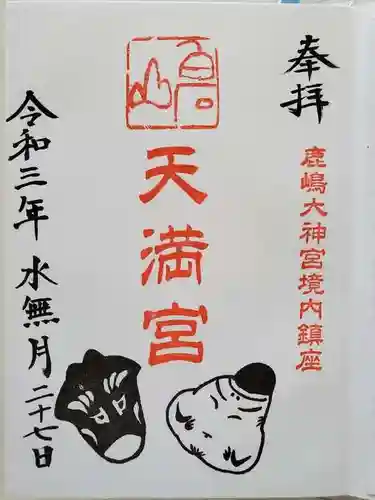 奉拝
鹿嶋大神宮境内鎮座
天満宮
令和三年 水無月二十七日